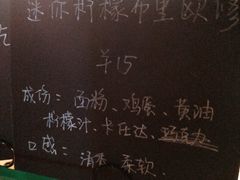 迷你柠檬布里欧修
¥15
成份：面粉、鸡蛋、黄油
柠檬汁、卡仕达、巧克力
口感：清香 柔软